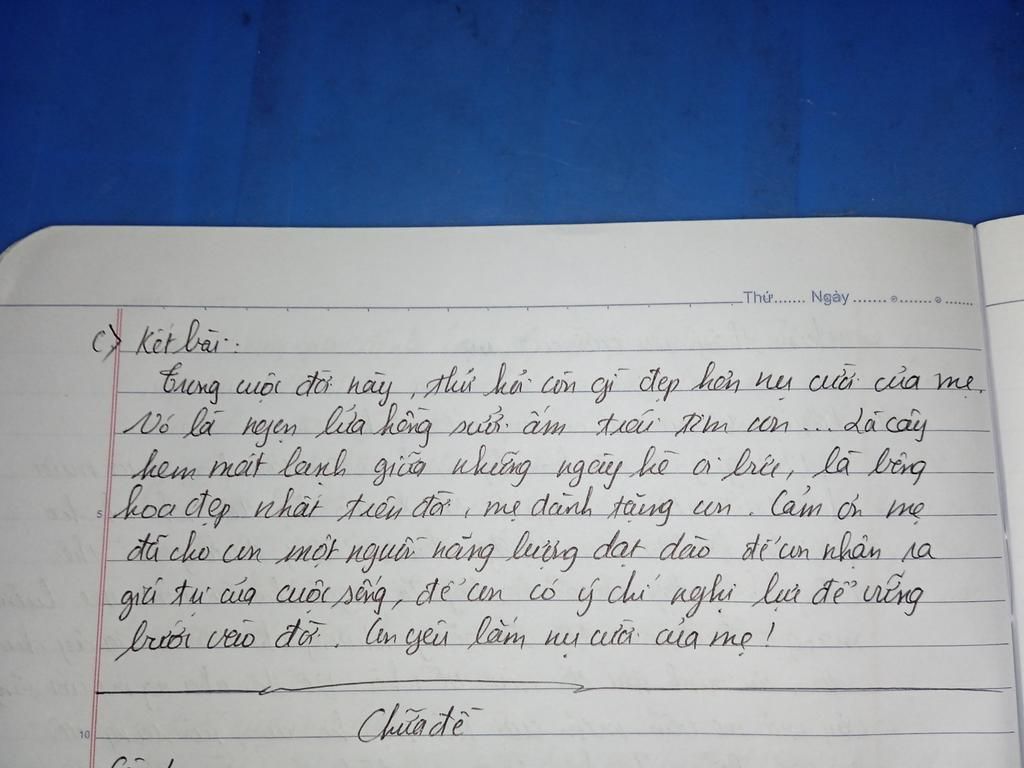 Thứ....... Ngày ....... ......... ......
C) Kết bài:
Trong cuộc đời này, thứ hỏi còn gì đẹp hơn nụ cười của mẹ.
Nó là ngọn lửa hồng sưởi ấm trái tim con... Là cây
kem mát lạnh giữa những ngày hè oi bức, là bông
5 hoa đẹp nhất trên đời, mẹ dành tặng con. Cảm ơn mẹ
đã cho con một nguồn năng lượng dạt dào để con nhận ra
giá trị của cuộc sống, để con có ý chí nghị lực để vững
bước vào đời. Con yêu lắm nụ cười của mẹ!
10 Chữa đề